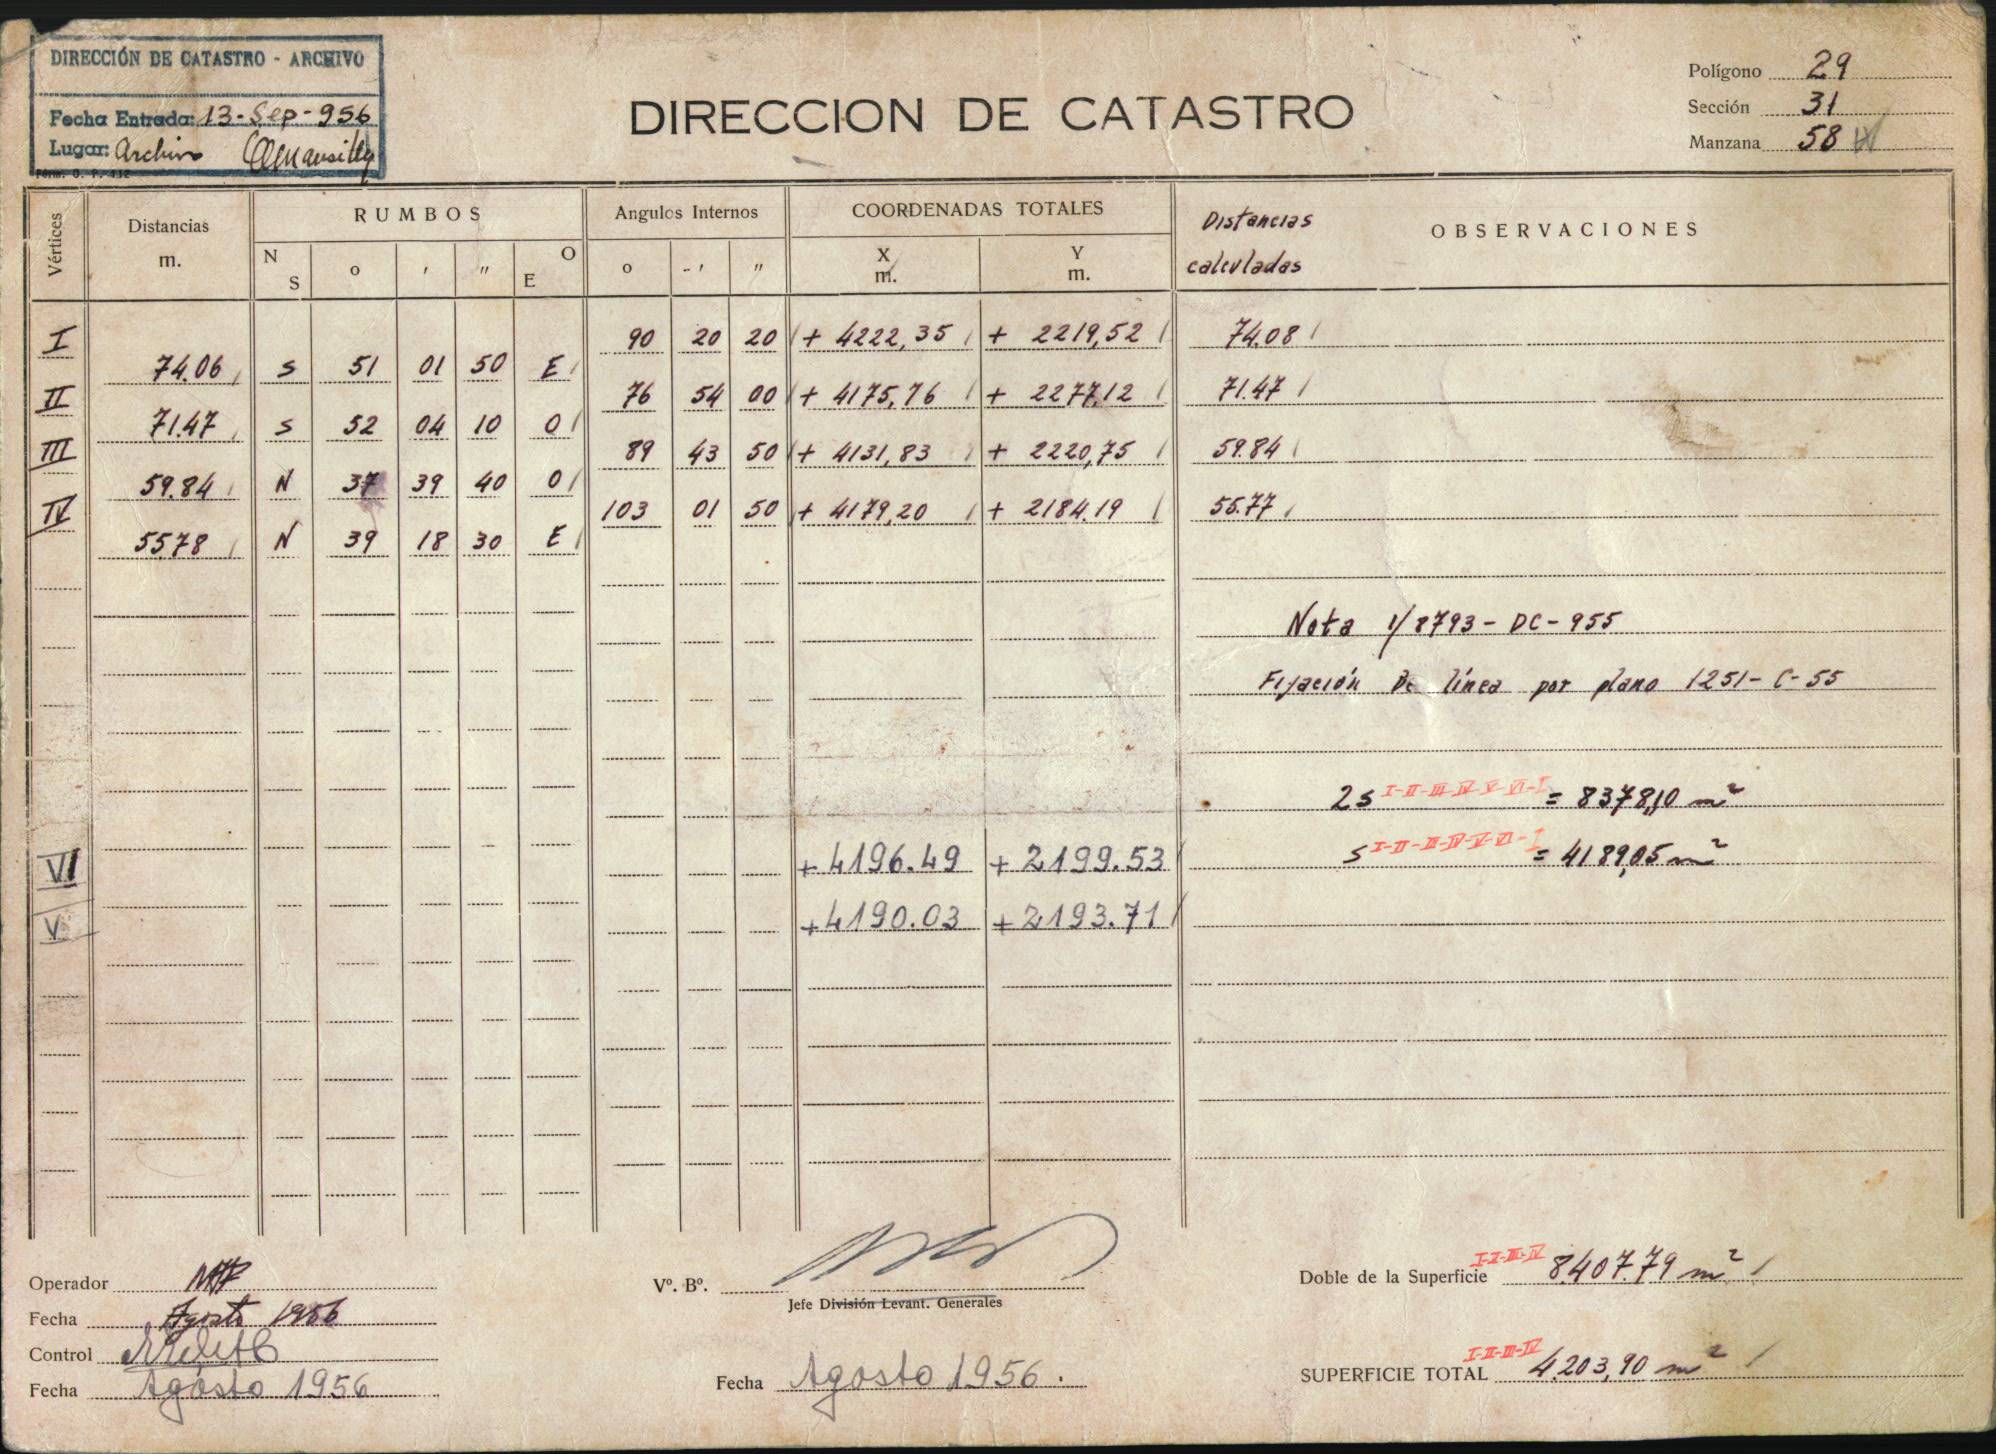 DIRECCIÓN DE CATASTRO - ARCHIVO
Fecha Entrada: 13-Sep-956
Lugar: Archivo
Form. O. P. 412
DIRECCION DE CATASTRO
Polígono 29
Sección 31
Manzana 58
Vértices
Distancias m.
RUMBOS
N S o ' " O E
Angulos Internos
o ' "
COORDENADAS TOTALES
X m. Y m.
Distancias calculadas
OBSERVACIONES
I 90 20 20 + 4222,35 + 2219,52 74.08
74.06 S 51 01 50 E
II 76 54 00 + 4175,76 + 2277,12 71.47
71.47 S 52 04 10 O
III 89 43 50 + 4131,83 + 2220,75 59.84
59.84 N 37 39 40 O
IV 103 01 50 + 4179,20 + 2184.19 55.77
55.78 N 39 18 30 E
Nota 1/8793-DC-955
Fijación De línea por plano 1251-C-55
2S I-II-III-IV-V-VI-I = 8378,10 m²
VI +4196.49 +2199.53 S I-II-III-IV-V-VI-I = 4189,05 m²
V +4190.03 +2193.71
Operador
Fecha Agosto 1956
Control
Fecha Agosto 1956
Vº. Bº.
Jefe División Levant. Generales
Fecha Agosto 1956.
I-II-III-IV
Doble de la Superficie 8.407.79 m²
I-II-III-IV
SUPERFICIE TOTAL 4.203,90 m²